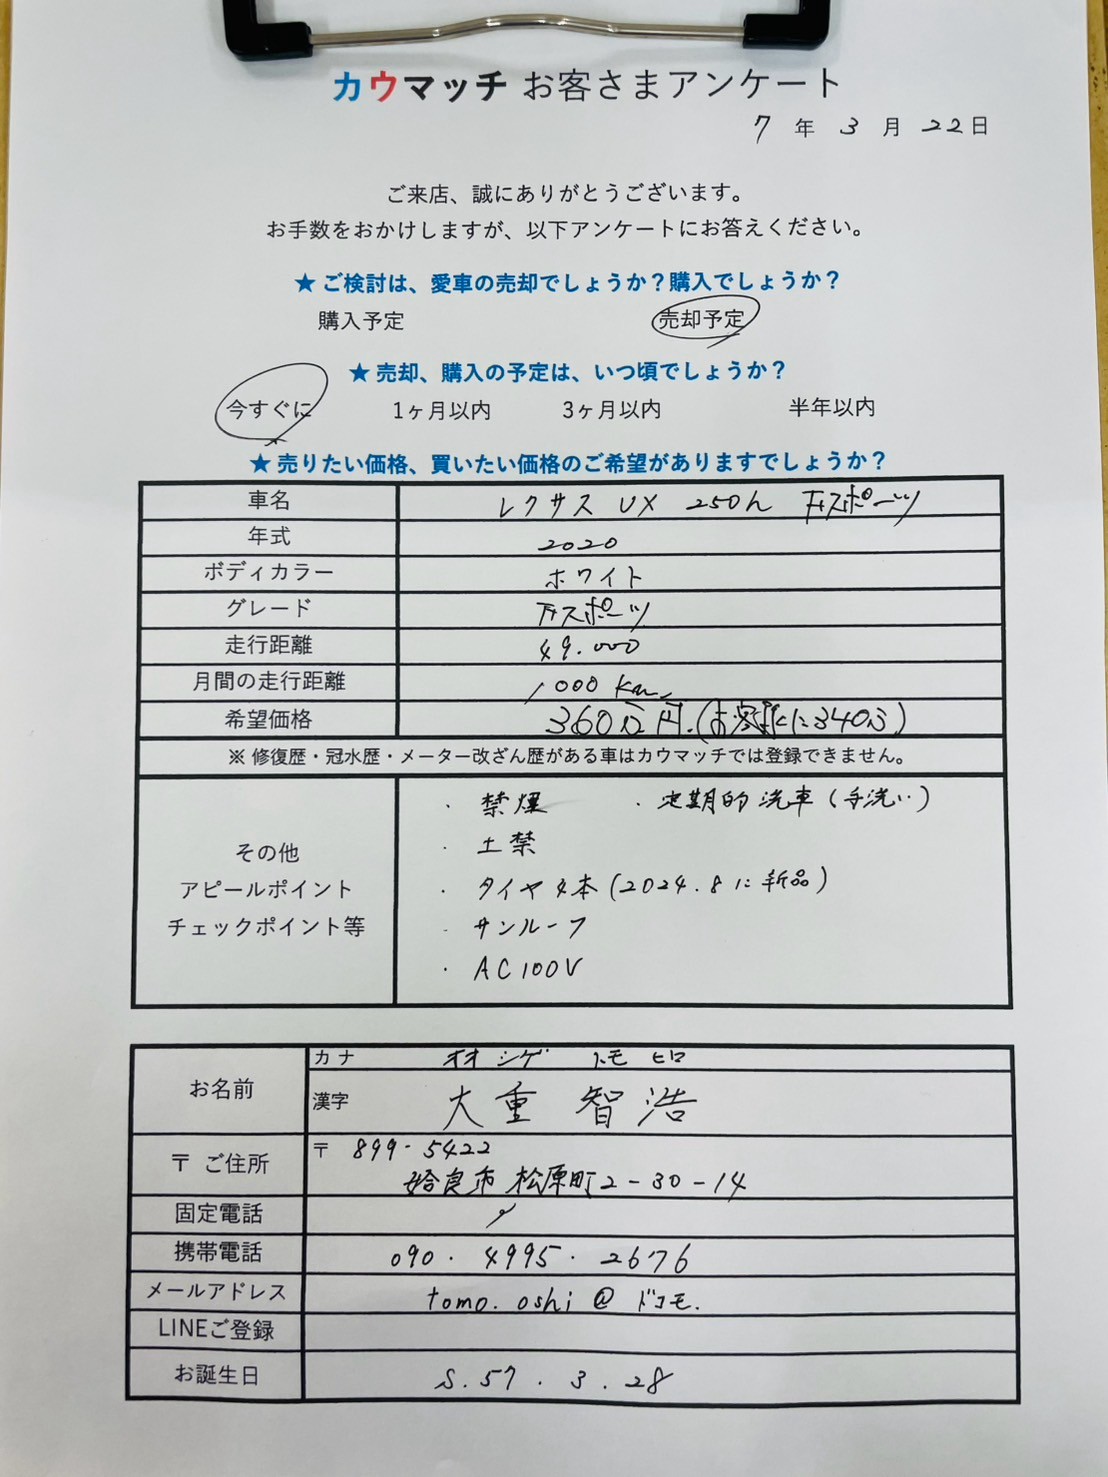 カウマッチ お客さまアンケート
7 年 3 月 22日
ご来店、誠にありがとうございます。
お手数をおかけしますが、以下アンケートにお答えください。
★ ご検討は、愛車の売却でしょうか?購入でしょうか?
購入予定 売却予定
★ 売却、購入の予定は、いつ頃でしょうか?
今すぐに 1ヶ月以内 3ヶ月以内 半年以内
★ 売りたい価格、買いたい価格のご希望がありますでしょうか?
車名 レクサス UX 250h Fスポーツ
年式 2020
ボディカラー ホワイト
グレード Fスポーツ
走行距離 49.000
月間の走行距離 1000 km
希望価格 360万円.(お客様に340万)
※ 修復歴・冠水歴・メーター改ざん歴がある車はカウマッチでは登録できません。
その他
アピールポイント
チェックポイント等
・ 禁煙 ・ 定期的洗車(手洗い)
・ 土禁
・ タイヤ4本(2024.8に新品)
・ サンルーフ
・ AC100V
お名前
カナ オオシゲ トモヒロ
漢字 大重 智浩
〒 ご住所
〒 899-5422
姶良市 松原町2-30-14
固定電話
携帯電話 090.4995.2676
メールアドレス tomo.oshi@ドコモ.
LINEご登録
お誕生日 S.57.3.28